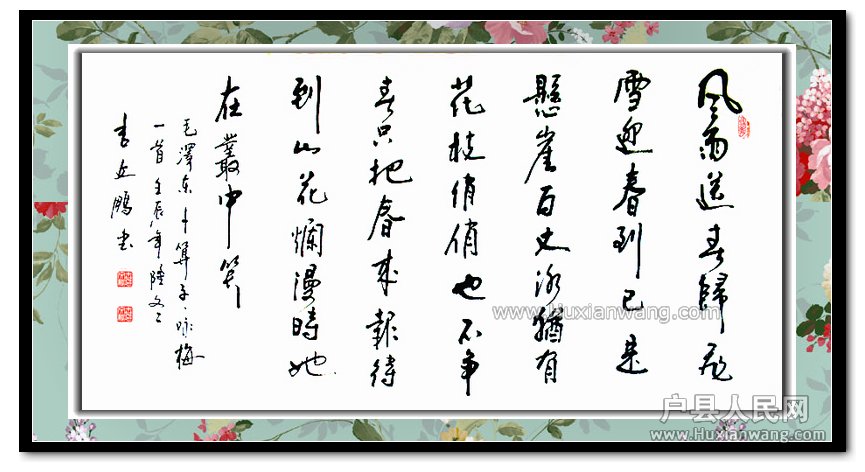 风雨送春歸飛
雪迎春到已是
懸崖百丈冰猶有
花枝俏俏也不争
春只把春来報待
到山花爛漫時她
在叢中笑
毛澤东卜算子·咏梅
一首壬辰年陸
鹏书
www.Huxianwang.com
户县人民网
www.Huxianwang.com